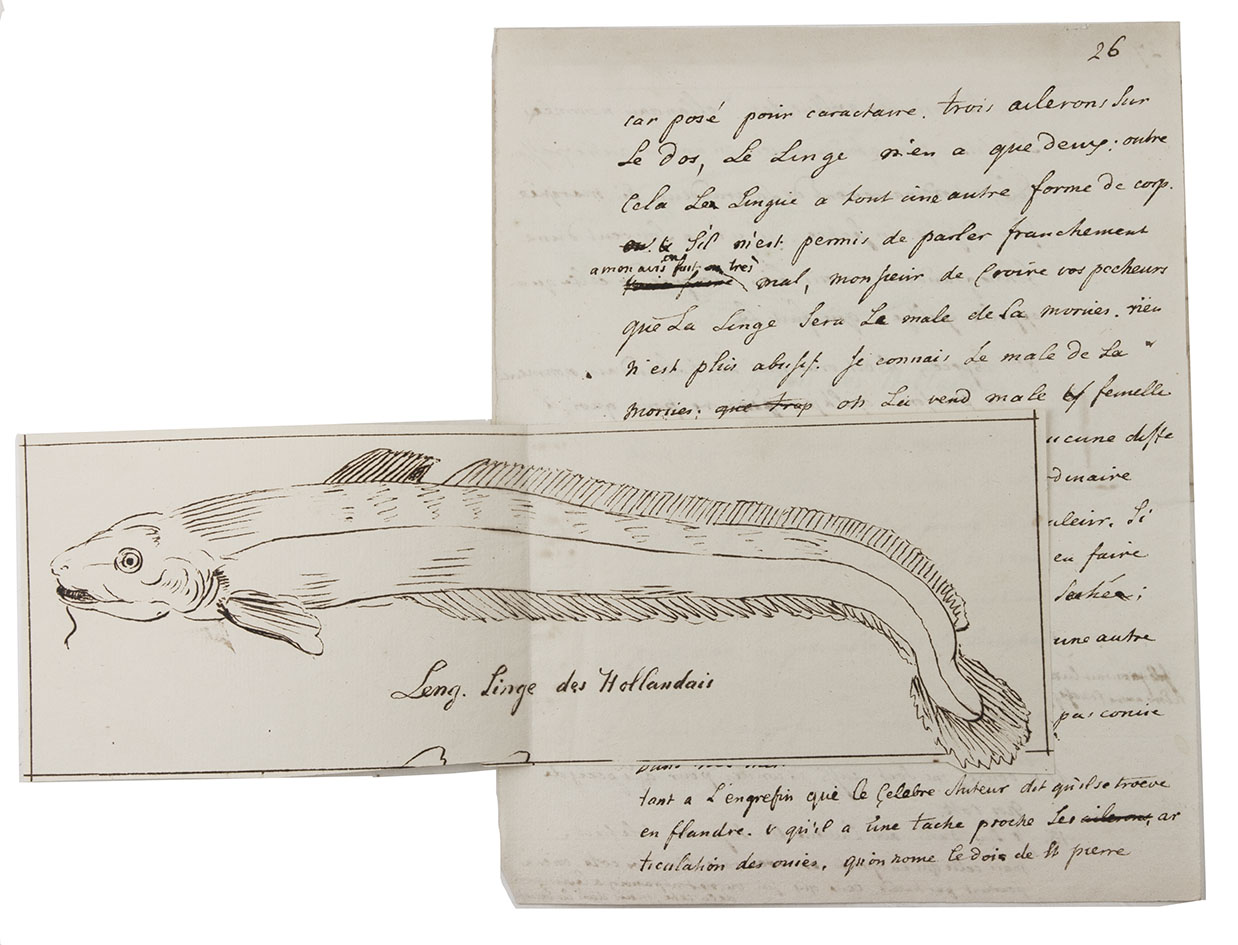 26
car posé pour caractaire. trois ailerons sur
Le dos, Le Linge n'en a que deux: outre
Cela Le Lingue a tout une autre forme de corp.
S'il n'est permis de parler franchement
a mon avis on fait très
mal, monsieur de Croire vos pecheurs
que La Linge Sera Le male de La morues. rien
n'est plus abusif. Je connais Le male de La
morues: que trop on Le vend male & femelle
ucune diffe
dinaire
uleur. Si
en faire
Sechée;
une autre
pas conue
Leng. Linge des Hollandais
tant a L'engrefin que le Celebre Auteur dit qu'il se troeve
en flandre. & qu'il a une tache proche Les ailerons, ar
ticulation des ouies. qu'on nome le doix de St pierre